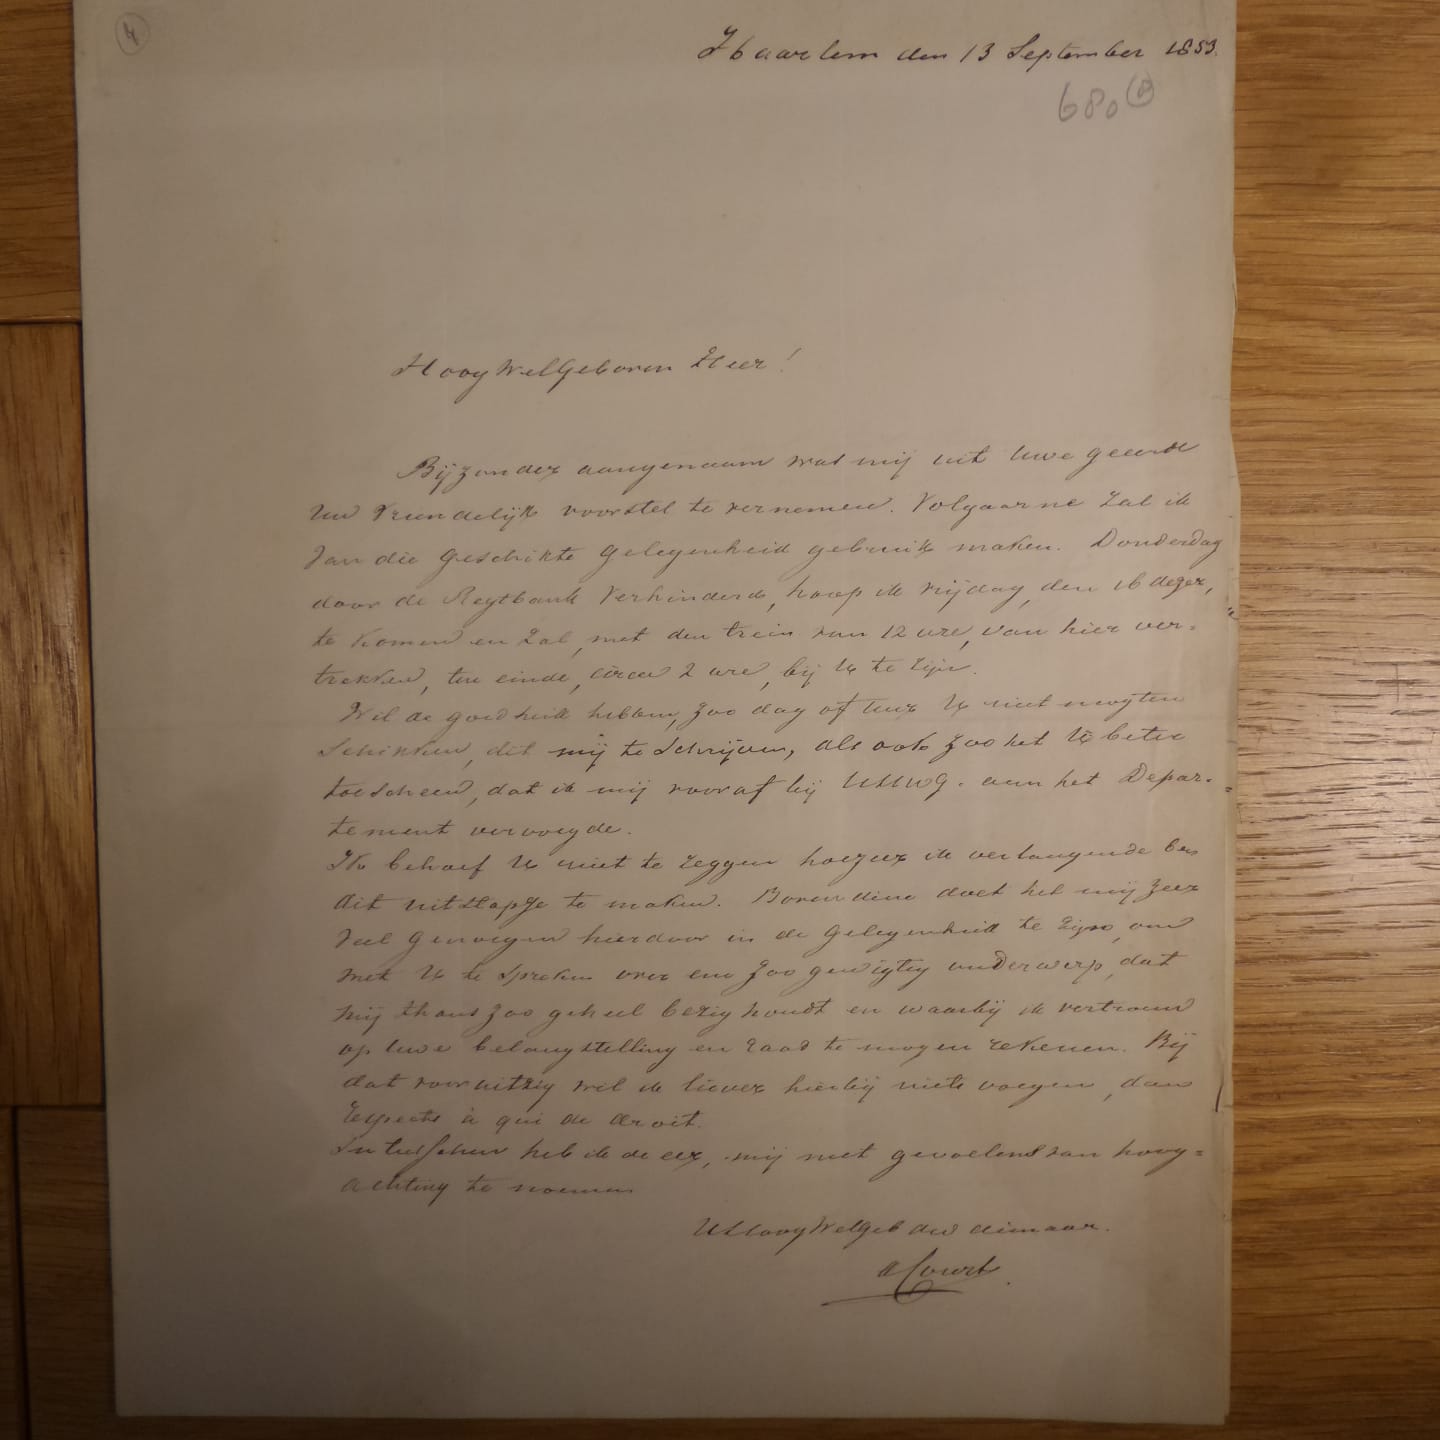 4
Haarlem den 13 September 1853.
680 (B)
HoogWelGeboren Heer!
Bijzonder aangenaam was mij uit Uwe geeerde
Uw vriendelijk voorstel te vernemen. Volgaarne zal ik
van die geschikte gelegenheid gebruik maken. Donderdag
door de Regtbank verhinderd, hoop ik vrijdag, den 16 dezer,
te komen en zal, met den trein van 12 ure, van hier ver=
trekken, ten einde, circa 2 ure, bij U te zijn.
Wil de goedheid hebben, zoo dag of uur U niet mogten
schikken, dit mij te schrijven, als ook zoo het U beter
toescheen, dat ik mij vooraf bij UHWG. aan het Depar=
tement vervoegde.
Ik behoef U niet te zeggen hoezeer ik verlangende ben
dit uitstapje te maken. Bovendien doet het mij zeer
veel genoegen hierdoor in de gelegenheid te zijn, om
met U te spreken over een zoo gewigtig onderwerp, dat
mij thans zoo geheel bezig houdt en waarbij ik vertrouw
op Uwe belangstelling en raad te mogen rekenen. Bij
dat vooruitzig wil ik liever hierbij niets voegen, dan
respects à qui de droit.
Intusschen heb ik de eer, mij met gevoelens van hoog=
achting te noemen
UHoogWelGeb dw dienaar.